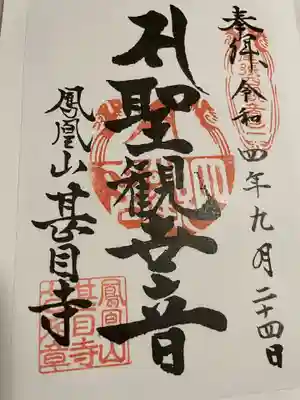 奉拝 令和四年九月二十四日
聖観世音
鳳凰山 甚目寺
鳳凰山
甚目寺